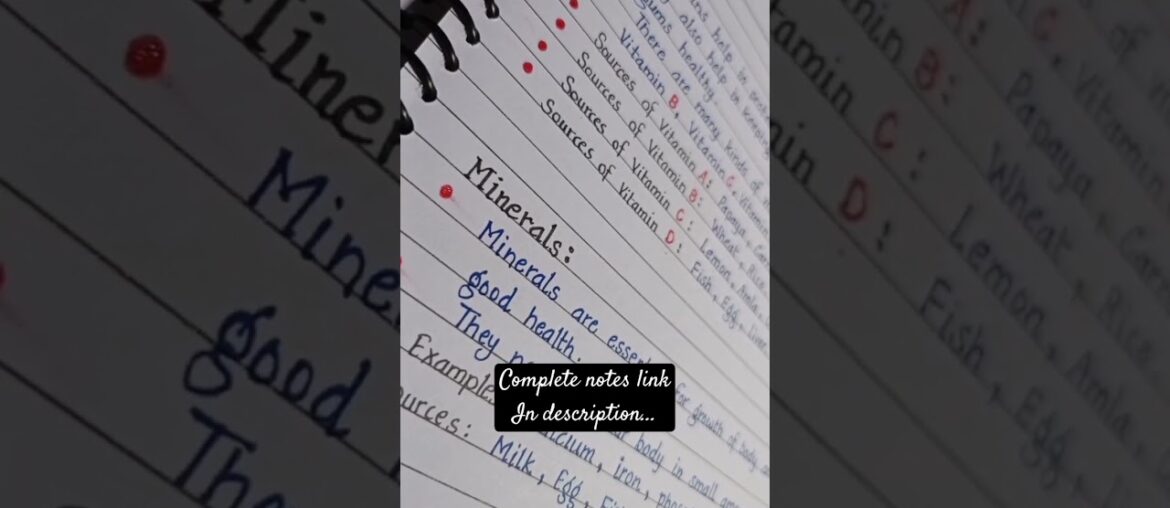 ins help in
also help in keeping
gums healthy.
There are many kinds of
Vitamin B, Vitamin C, Vitamin
Sources of Vitamin A: Papaya, Car
Sources of Vitamin B: Wheat, Rice
Sources of Vitamin C: Lemon, Amla,
Sources of Vitamin D: Fish, Egg, Liver
Minerals:
Minerals are essen for growth of body
good health.
They body in small
Example cium, iron, phos
urces: Milk, Egg, Fi
Complete notes link
In description...